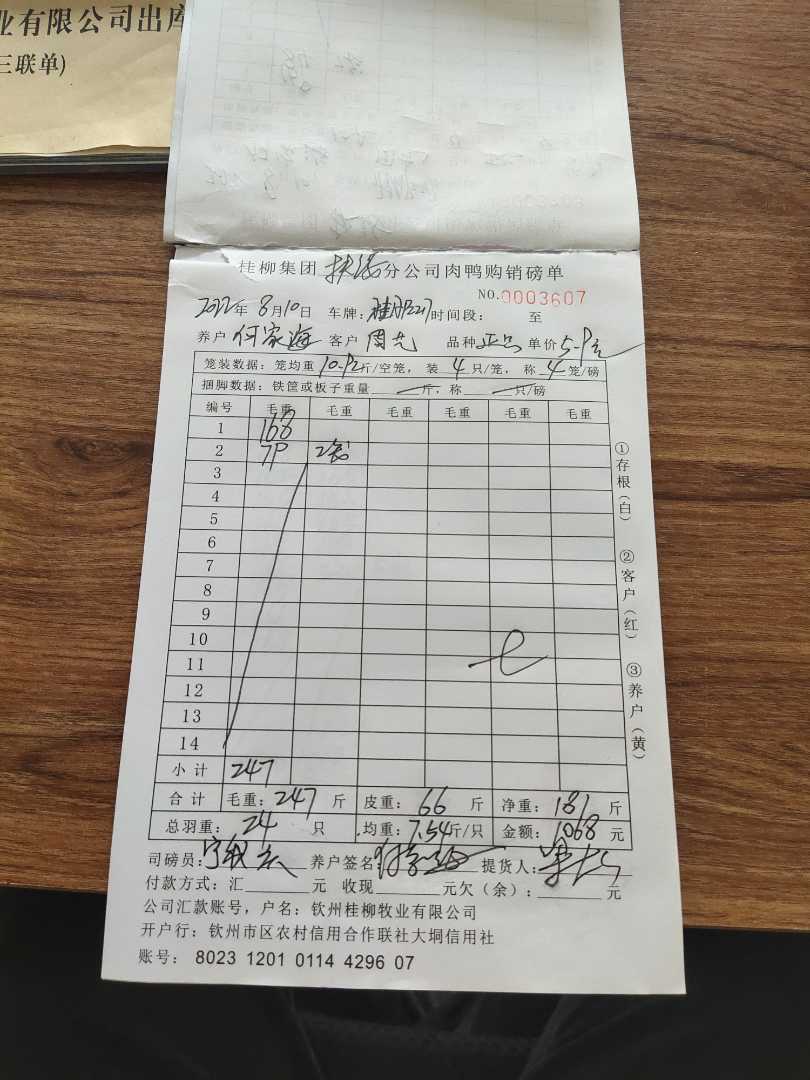 业有限公司出库
三联单)
桂柳集团 扶海 分公司肉鸭购销磅单
NO.0003607
2022年 8月10日 车牌: 时间段: 至
养户 何家海 客户 周 品种 正品 单价 5.9元
笼装数据: 笼均重 斤/空笼, 装 4 只/笼, 称 4 笼/磅
捆脚数据: 铁筐或板子重量 斤, 称 只/磅
编号 毛重 毛重 毛重 毛重 毛重 毛重
1 168
2 79 2只
3
4
5
6
7
8
9
10
11
12
13
14
小计 247
合计 毛重: 247 斤 皮重: 66 斤 净重: 181 斤
总羽重: 24 只 均重: 7.54斤/只 金额: 1068 元
司磅员: 养户签名: 何家海 提货人:
付款方式: 汇 元 收现 元欠(余): 元
公司汇款账号, 户名: 钦州桂柳牧业有限公司
开户行: 钦州市区农村信用合作联社大垌信用社
账号: 8023 1201 0114 4296 07
①存根(白) ②客户(红) ③养户(黄)